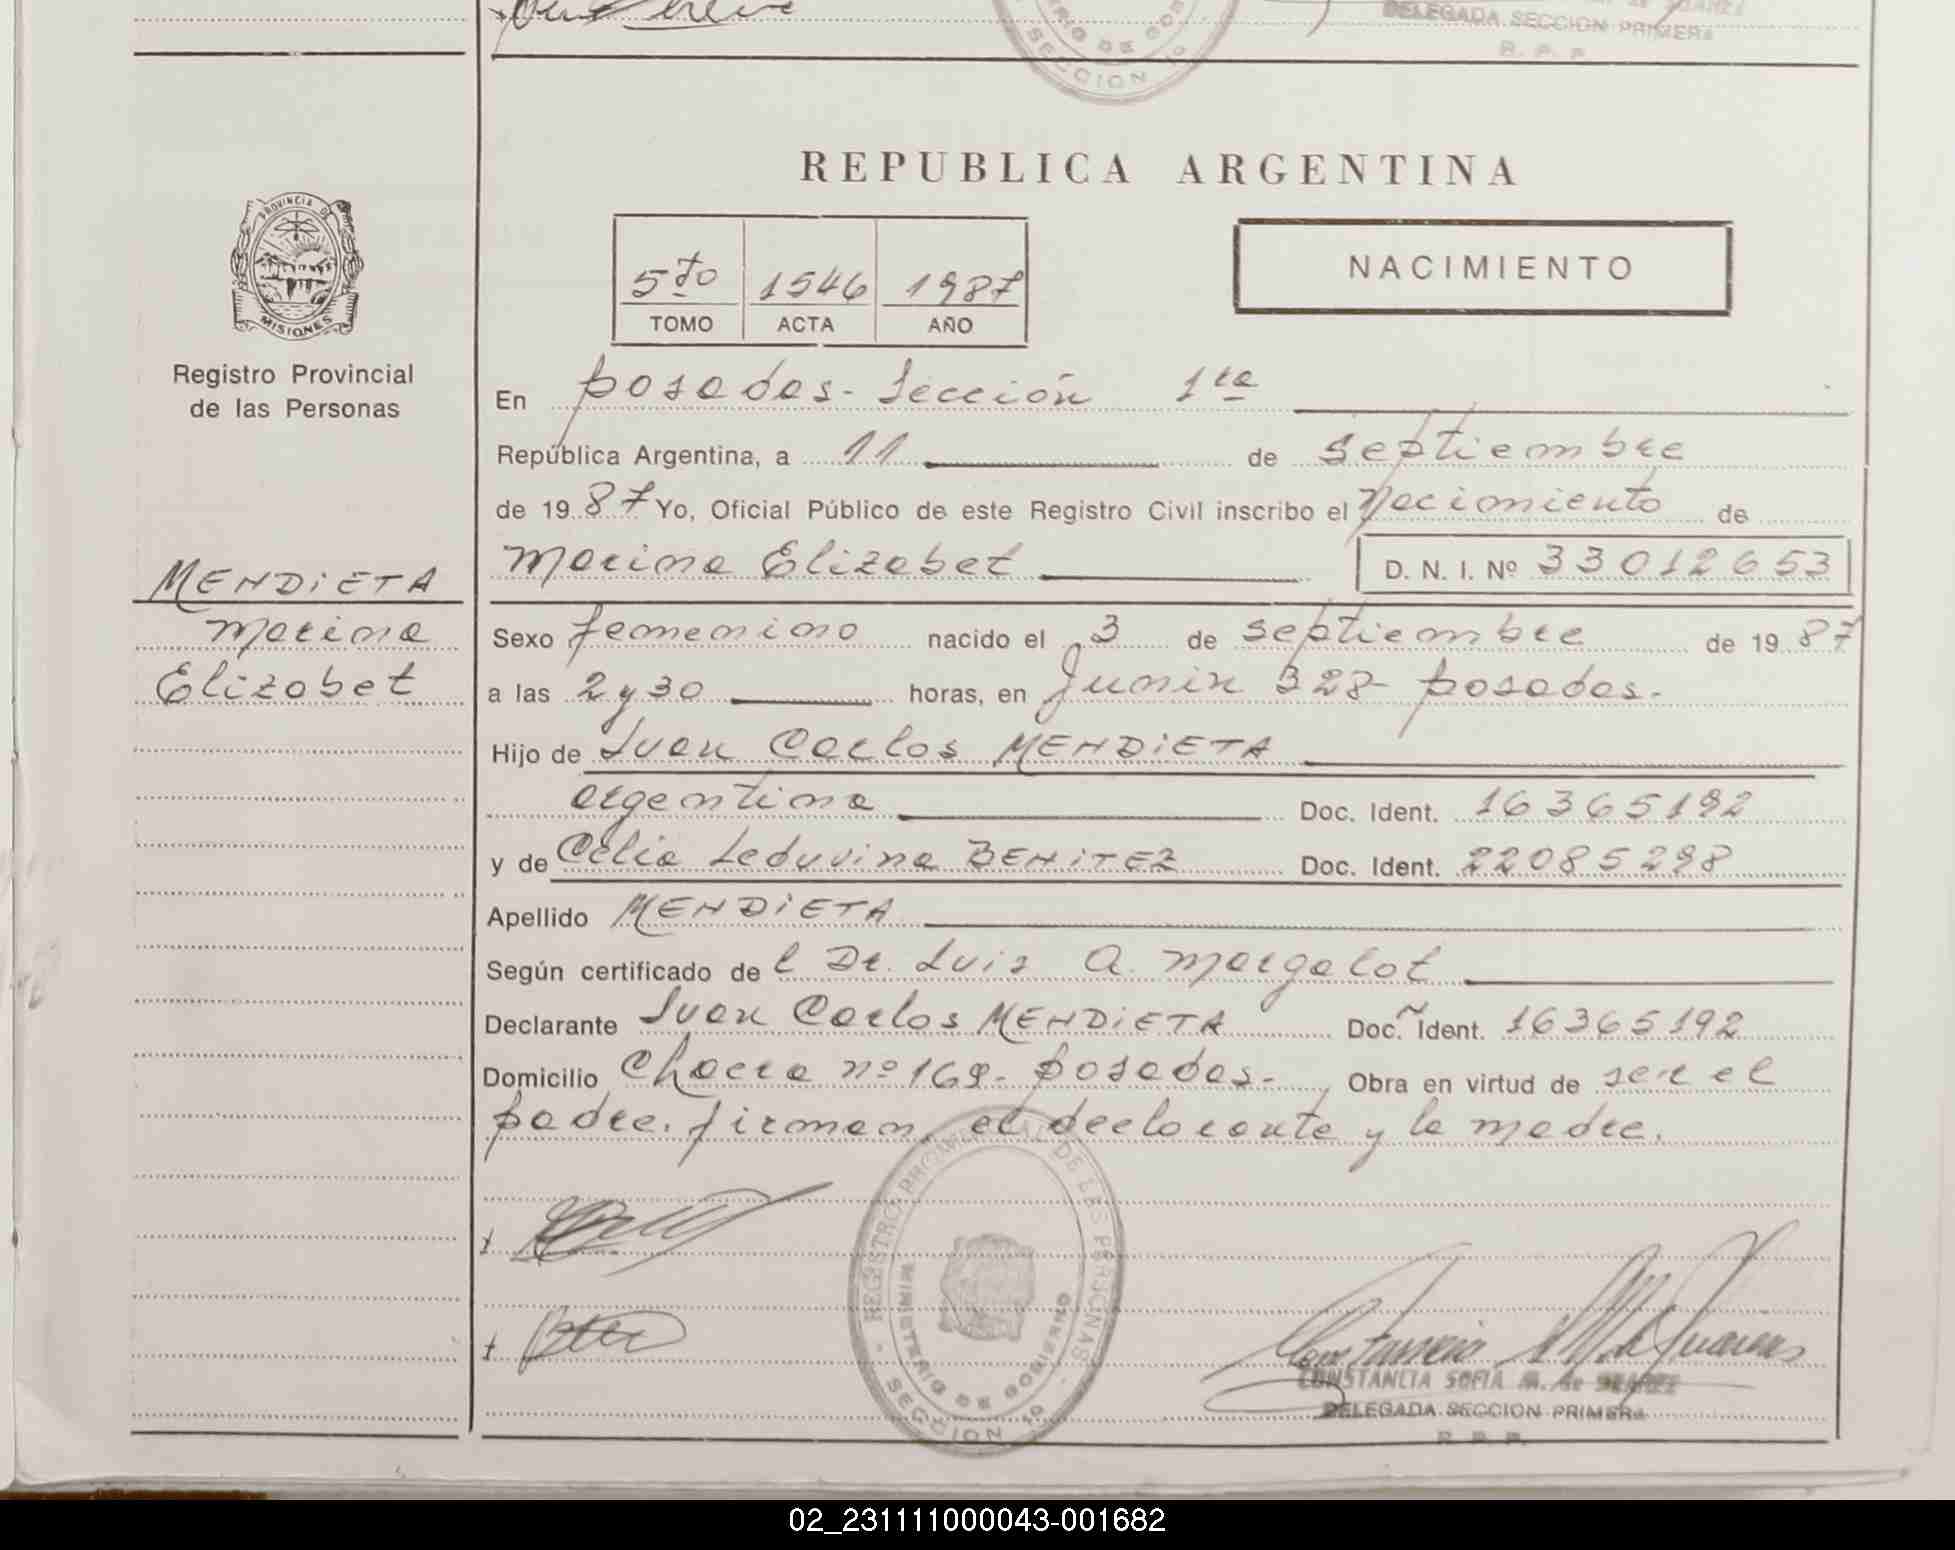 DELEGADA SECCION PRIMERA
R. P. P.
SECCION 1º
REPUBLICA ARGENTINA
PROVINCIA DE
MISIONES
Registro Provincial
de las Personas
5to 1546 1987
TOMO ACTA AÑO
NACIMIENTO
En posadas - Sección 1ra
República Argentina, a 11 de septiembre
de 1987 Yo, Oficial Público de este Registro Civil inscribo el Nacimiento de
Marina Elizabet D. N. I. Nº 33012653
MENDIETA
Marina
Elizabet
Sexo femenino nacido el 3 de septiembre de 1987
a las 2 y 30 horas, en Junin 328 - posadas.
Hijo de Juan Carlos MENDIETA
argentina Doc. Ident. 16365192
y de Celia Leduvina BENITEZ Doc. Ident. 22085298
Apellido MENDIETA
Según certificado de l Dr. Luis A. Margalot
Declarante Juan Carlos MENDIETA Doc. Ident. 16365192
Domicilio Chacra nº 169 - posadas - Obra en virtud de ser el
padre. firman, el declarante y la madre.
REGISTRO PROVINCIAL DE LAS PERSONAS
MINISTERIO DE GOBIERNO
SECCION 1º
CONSTANCIA SOFIA M. de SUAREZ
DELEGADA SECCION PRIMERA
R. P. P.
02_231111000043-001682